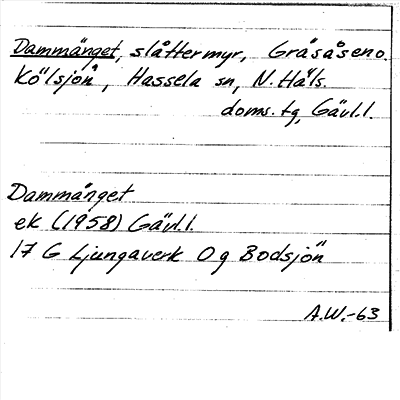 Dammänget, slåttermyr, Gräsåsen o.
Kölsjön, Hassela sn, N. Häls.
doms. tg, Gävl.l.
Dammänget
ek (1958) Gävl.l.
17 G Ljungaverk 0 g Bodsjön
A.W.-63